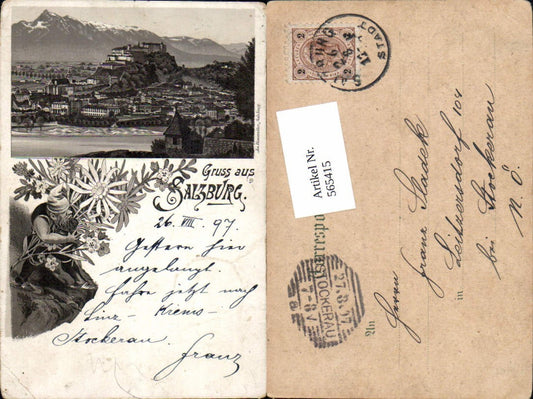 Gruss aus
SALZBURG.
26. VIII. 97.
Gestern hier
angelangt.
Fahre jetzt nach
Linz - Krems -
Stockerau.
Franz
2 2
STADT
Artikel Nr.
565415
Correspo
27.8.97
STOCKERAU
7-8.V
An
Herrn Franz Sladek
in Leitzersdorf 104
bei Stockerau
N. Ö.